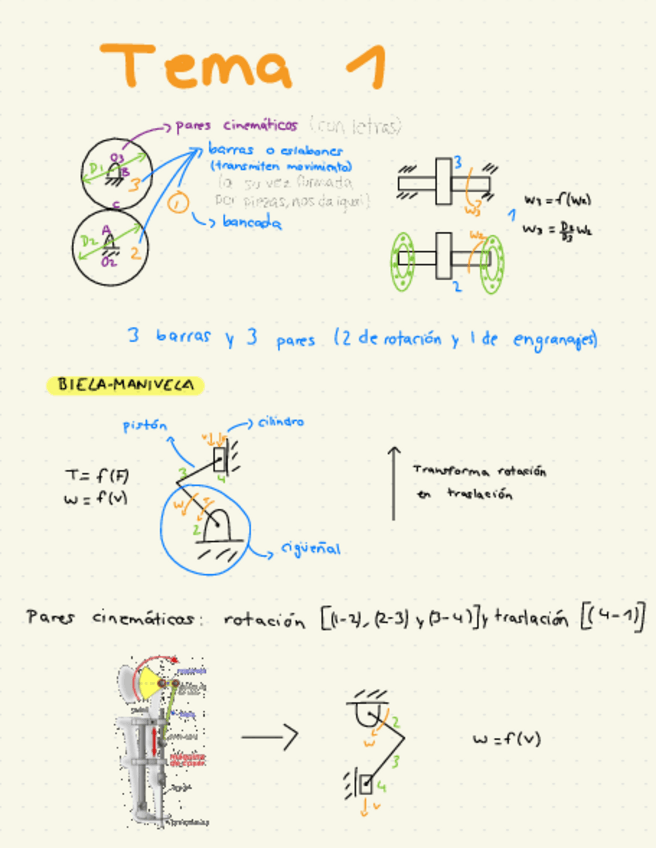 Tema 1
pares cinemáticos (con letras)
barras o eslabones
(transmiten movimiento)
(a su vez formada
por piezas, nos da igual)
1
bancada
D1
O3
B
3
C
A
D2
O2
2
3
W3
1
W2
2
W3 = f(W2)
W3 = D2/D3 W2
3 barras y 3 pares (2 de rotación y 1 de engranajes)
BIELA-MANIVELA
pistón
cilindro
T = f(F)
w = f(v)
v
3
4
w
2
cigüeñal
Transforma rotación
en traslación
Pares cinemáticos: rotación [(1-2), (2-3) y (3-4)] y traslación [(4-1)]
2
w
3
4
v
w = f(v)